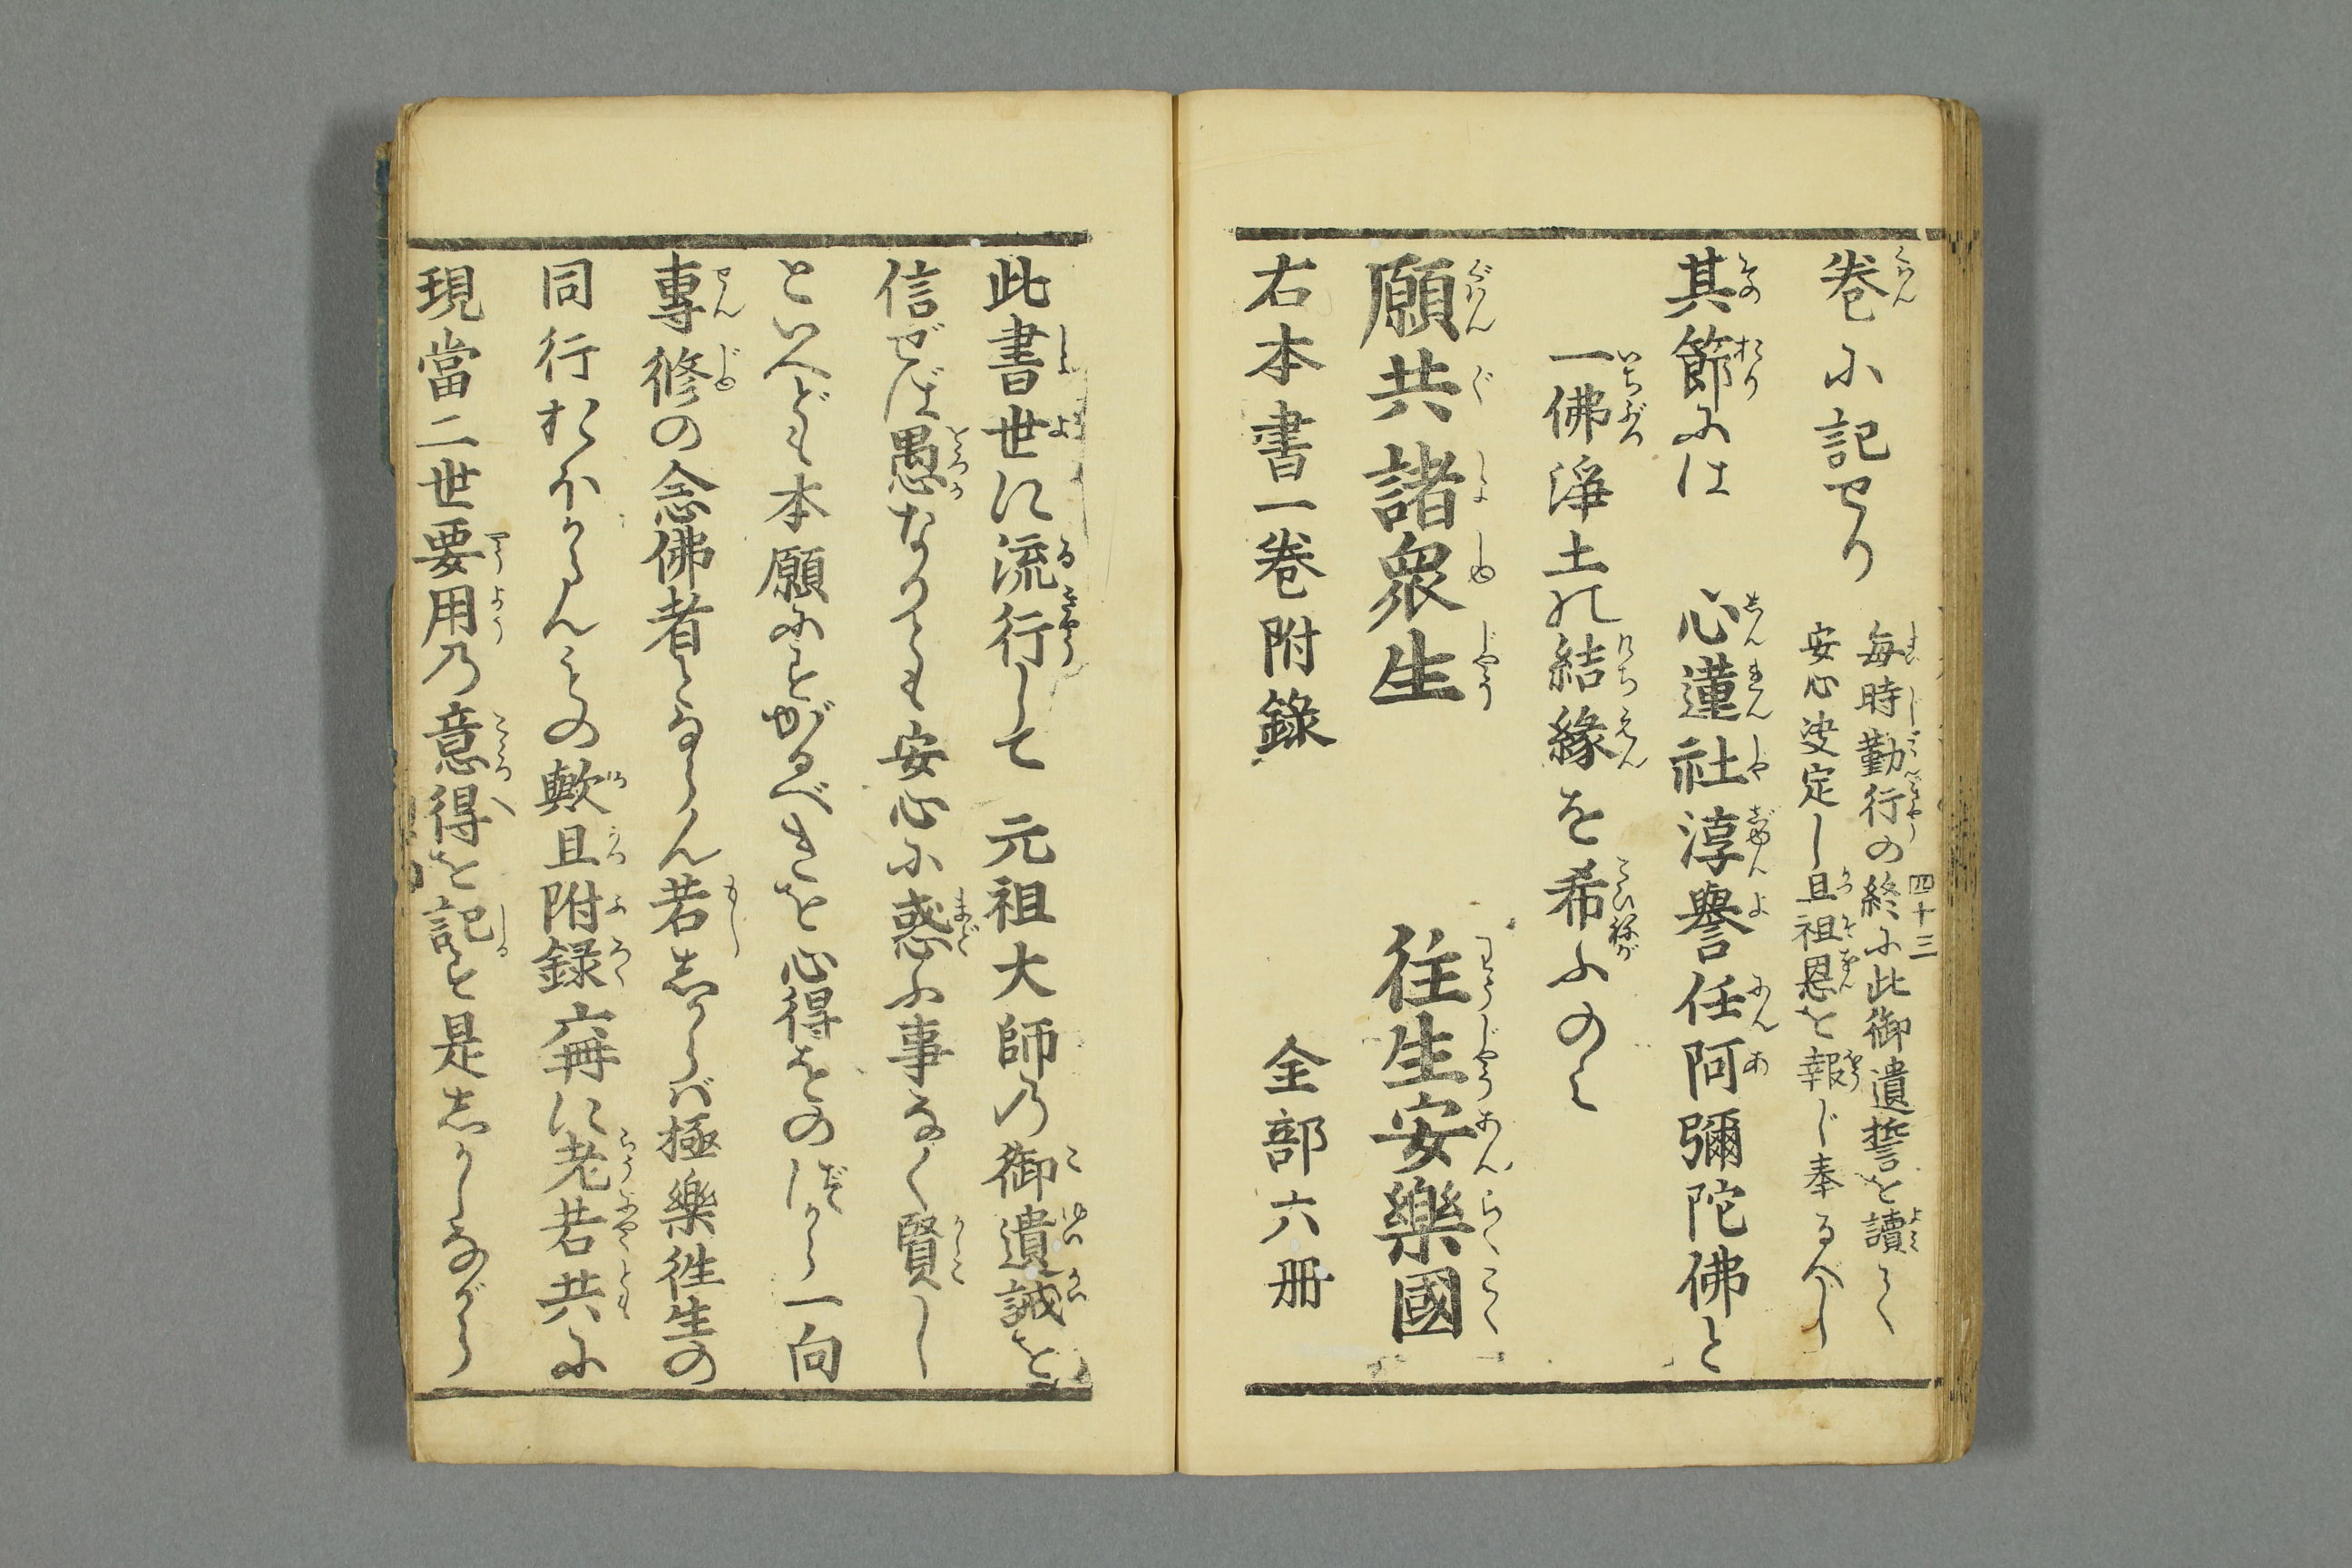 卷に記せり
毎時勤行の終に此御遺誓を讀て
安心决定し且祖恩を報じ奉るへし
四十三
其節には　心蓮社淳譽任阿彌陀佛と
一佛淨土の結緣を希ふのみ
願共諸衆生　往生安樂國
右本書一卷附錄　全部六冊
此書世に流行して　元祖大師乃御遺誡を
信ぜば愚なりとも安心に惑ふ事なく賢し
といへども本願にすがるべきを心得なのしから一向
專修の念佛者となりなん若しからば極樂徃生の
同行おほからんものか歟且附録二冊に老若共に
現當二世要用乃意得を記す是しかしながら